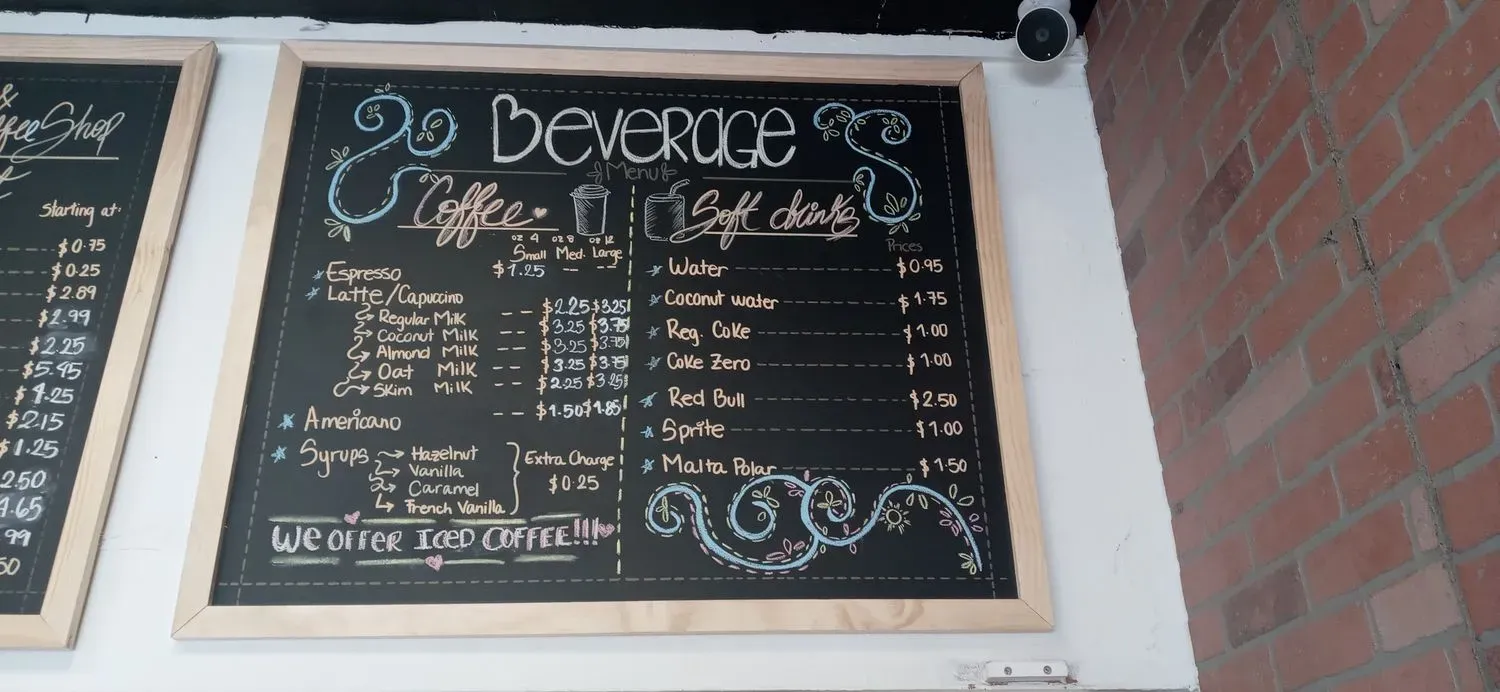 &
ffee Shop
Starting at:
$0.75
$0.25
$2.89
$2.99
$2.25
$5.45
$1.25
$2.15
$1.25
2.50
4.65
99
50
BEVERAGE
Menu
Coffee
oz 4 oz 8 oz 12
Small Med. Large
Espresso $1.25 -- --
Latte/Capuccino
Regular Milk -- $2.25 $3.25
Coconut Milk -- $3.25 $3.75
Almond Milk -- $3.25 $3.75
Oat Milk -- $3.25 $3.75
Skim Milk -- $2.25 $3.25
Americano -- $1.50 $1.85
Syrups Hazelnut
Vanilla
Caramel
French Vanilla
Extra Charge
$0.25
WE OFFER ICED COFFEE!!!
Soft drinks
Prices
Water $0.95
Coconut water $1.75
Reg. Coke $1.00
Coke Zero $1.00
Red Bull $2.50
Sprite $1.00
Malta Polar $1.50